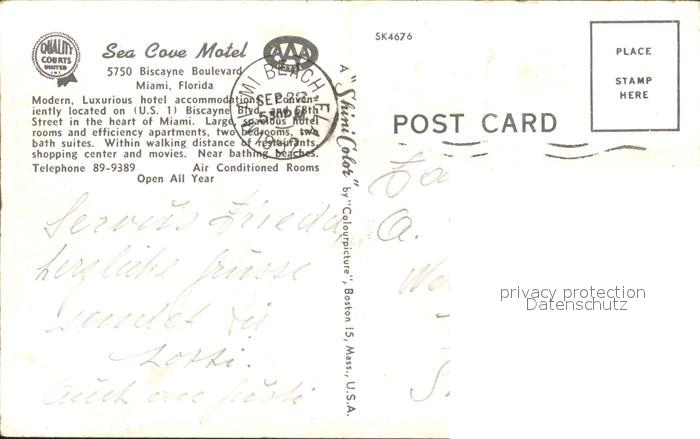 QUALITY
COURTS
UNITED
INC
Sea Cove Motel
AAA
5750 Biscayne Boulevard
Miami, Florida
Modern, Luxurious hotel accommodations. Conven-
iently located on (U.S. 1) Biscayne Blvd. and 58th
Street in the heart of Miami. Large, spacious hotel
rooms and efficiency apartments, two bedrooms, two
bath suites. Within walking distance of restaurants,
shopping center and movies. Near bathing beaches.
Telephone 89-9389 Air Conditioned Rooms
Open All Year
MIAMI BEACH, FLA
SEP 22
530 PM
A "ShiniColor" by "Colourpicture", Boston 15, Mass., U.S.A.
SK4676
PLACE
STAMP
HERE
POST CARD
Servus
herzliche Grüsse
sendet
Lotti.
Auch an Gusti
A.
privacy protection
Datenschutz